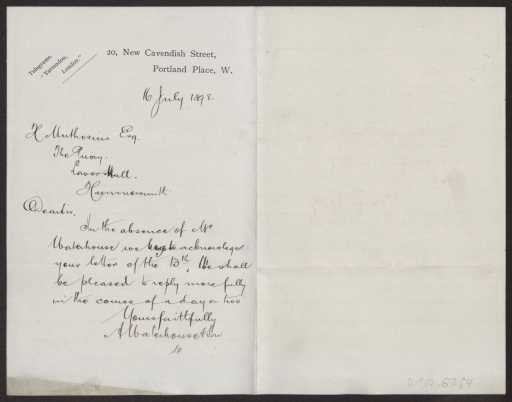 Telegrams,
London."
20, New Cavendish Street,
Portland Place, W.
16 July 1898.
H Muthesius Esq.
The Priory.
Hammersmith.
Dear Sir,
In the absence of Mr
Waterhouse we beg to acknowledge
your letter of the 15th, We shall
be pleased to reply more fully
in the course of a day or two
Yours faithfully
A Waterhouse & Son